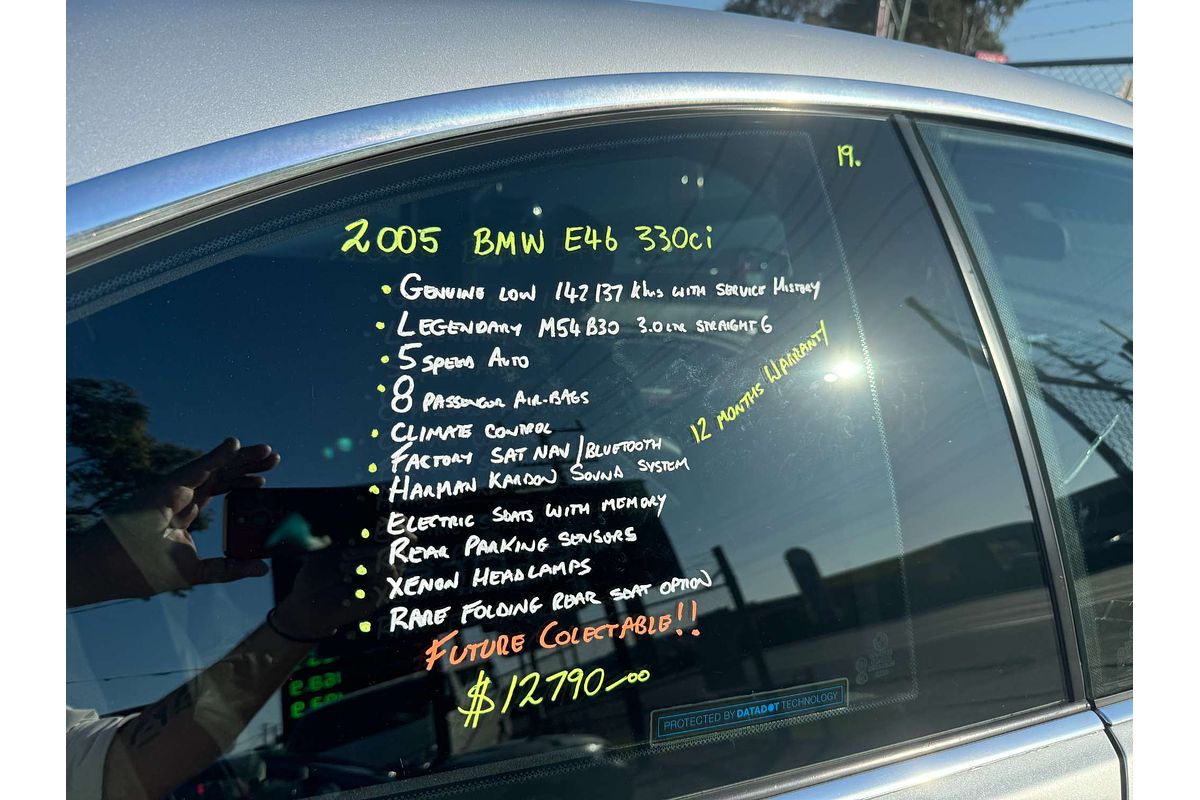 19.
2005 BMW E46 330ci
• GENUINE LOW 142137 Kms WITH SERVICE HISTORY
• LEGENDARY M54B30 3.0LTR STRAIGHT 6
• 5 SPEED AUTO
• 8 PASSENGER AIR-BAGS
• CLIMATE CONTROL
• FACTORY SAT NAV/BLUETOOTH
• HARMAN KARDON SOUND SYSTEM
• ELECTRIC SEATS WITH MEMORY
• REAR PARKING SENSORS
• XENON HEADLAMPS
• RARE FOLDING REAR SEAT OPTION
12 MONTHS WARRANTY
FUTURE COLECTABLE!!
$12790-00
PROTECTED BY DATADOT TECHNOLOGY